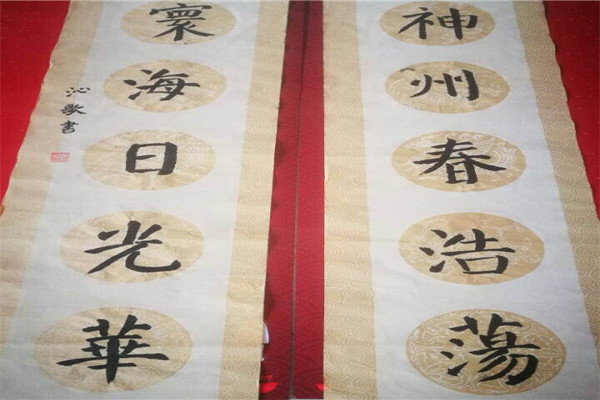 神州春浩蕩
寰海日光華
沁歌書